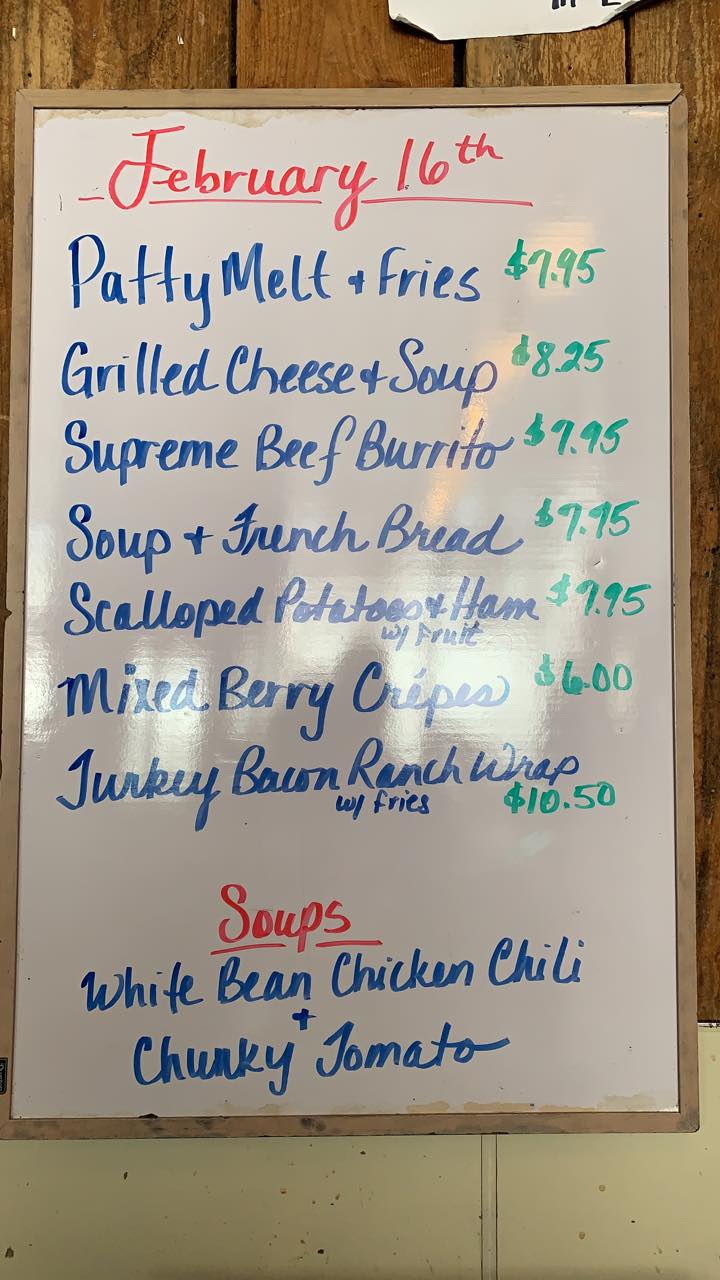 February 16th
Patty Melt + Fries $7.95
Grilled Cheese + Soup $8.25
Supreme Beef Burrito $7.95
Soup + French Bread $7.95
Scalloped Potatoes + Ham $7.95
w/ Fruit
Mixed Berry Crépes $6.00
Turkey Bacon Ranch Wrap
w/ fries $10.50
Soups
White Bean Chicken Chili
+
Chunky Tomato